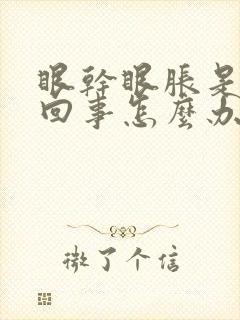 眼幹眼脹是
回事怎麼办
微了个信